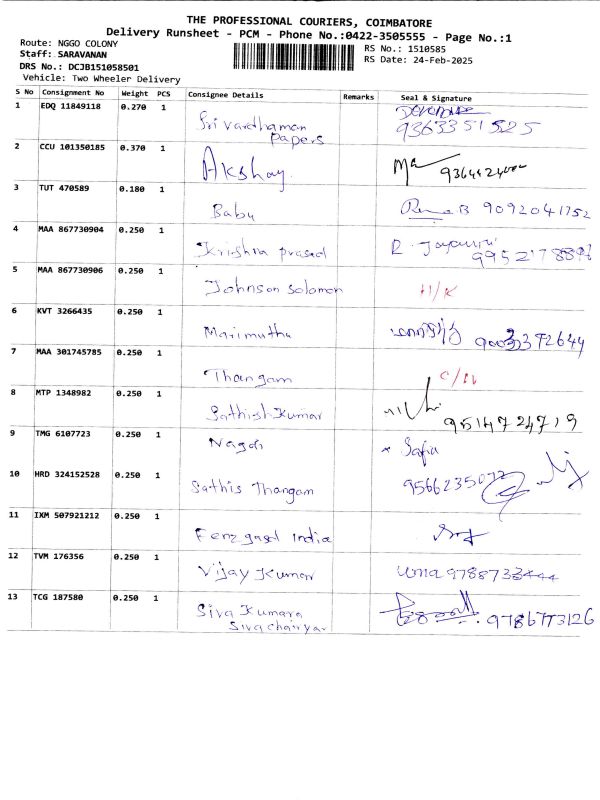 THE PROFESSIONAL COURIERS, COIMBATORE
Delivery Runsheet - PCM - Phone No.:0422-3505555 - Page No.:1
Route: NGGO COLONY
Staff: SARAVANAN
DRS No.: DCJB151058501
Vehicle: Two Wheeler Delivery
RS No.: 1510585
RS Date: 24-Feb-2025
S No Consignment No Weight PCS Consignee Details Remarks Seal & Signature
1 EDQ 11849118 0.270 1 Sri Vardhaman
Papers 9363351525
2 CCU 101350185 0.370 1 Akshay
3 TUT 470589 0.180 1 Babu B 9092041752
4 MAA 867730904 0.250 1 Krishna prasad R.
5 MAA 867730906 0.250 1 Johnson solomon
6 KVT 3266435 0.250 1 Marimuthu
7 MAA 301745785 0.250 1 Thangam
8 MTP 1348982 0.250 1 Sathish Kumar 9514724719
9 TMG 6107723 0.250 1 Safia
10 HRD 324152528 0.250 1 Sathis Thangam
11 IXM 507921212 0.250 1 India
12 TVM 176356 0.250 1 Vijay Kumar uma 9788733444
13 TCG 187580 0.250 1 Siva Kumara
9786773126